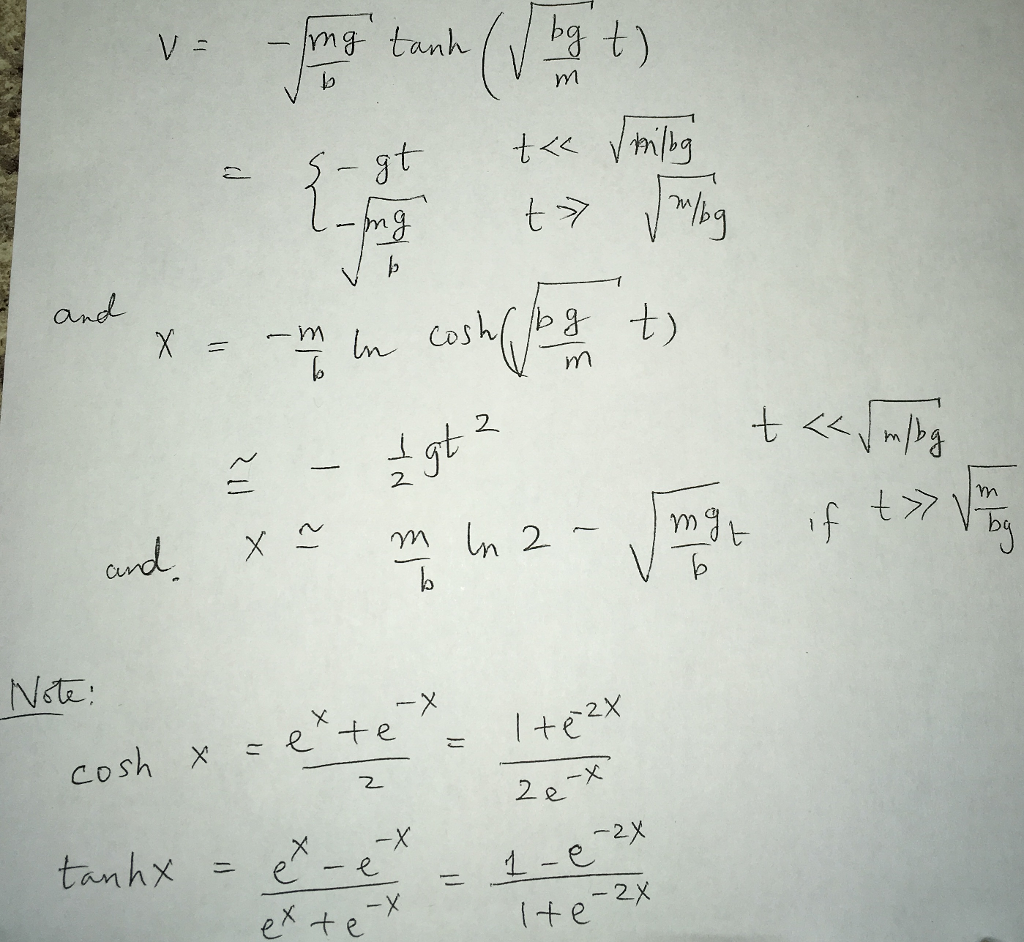 V = -√(mg/b) tanh (√(bg/m) t)
= { -gt t << √(m/bg)
-√(mg/b) t >> √(m/bg)
and
x = -m/b ln cosh(√(bg/m) t)
≅ - 1/2 gt² t << √(m/bg)
and. x ≃ m/b ln 2 - √(mg/b) t if t >> √(m/bg)
Note:
cosh x = (eˣ + e⁻ˣ)/2 = (1 + e⁻²ˣ)/(2e⁻ˣ)
tanhx = (eˣ - e⁻ˣ)/(eˣ + e⁻ˣ) = (1 - e⁻²ˣ)/(1 + e⁻²ˣ)